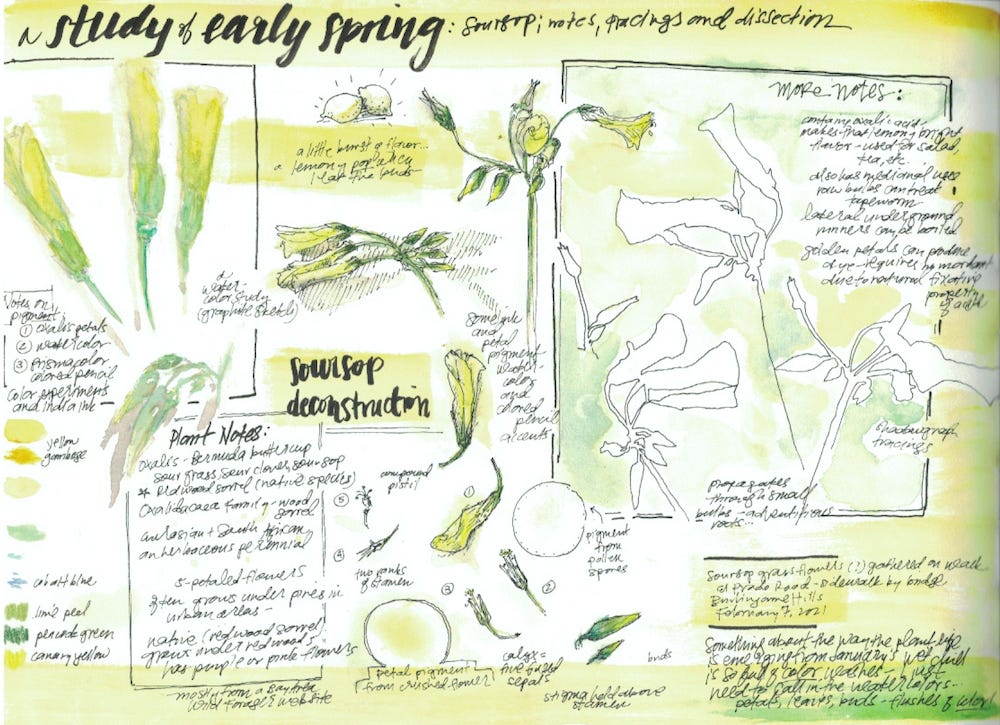 a study of early spring: soursop; notes, tracings and dissection
a little burst of flavor...
a lemony
I eat the buds
a
water-
color study
(graphite sketch)
Notes on
pigment:
① oxalis petals
② watercolor
③ prismacolor
colored pencil
color experiments
and india ink
yellow
gamboge
cobalt blue
lime peel
green
canary yellow
some ink
and
petal
pigment
water-
color
and
colored
pencil
accents
soursop
deconstruction
Plant Notes:
oxalis - Bermuda buttercup
sour grass, sour clover, soursop
* redwood sorrel (native species)
Oxalidacaea family - wood
sorrel
South African
an herbaceous perennial
5-petaled flowers
often grows under pines in
urban areas -
native (redwood sorrel)
grows under redwoods
has purple or pink flowers
mostly from a Bay Area
Wild Forager website
compound
pistil
⑤
①
④
two ranks
of stamen
③
②
pigment
from
pollen
spores
petal pigment
from crushed flower
calyx =
five fused
sepals
stigma held above
stamen
buds
more notes:
contains oxalic acid -
makes that lemony bright
flavor - used for salad,
tea, etc.
also has medicinal uses
raw bulbs can treat
tapeworm
lateral underground
runners can be boiled
golden petals can produce
dye - requires no mordant
due to natural fixative
property
of acid
shadowgraph
tracings
propagates
through small
bulbs - adventitious
roots...
soursop grass flowers (!) gathered on walk
@ Prado Road - sidewalk by bridge
Burlingame Hills
February 7, 2021
Something about the way the plant life
is emerging from January's wet chill
is so full of color washes - I just
need to pull in the watercolors...
petals, leaves, buds - flushes of color!